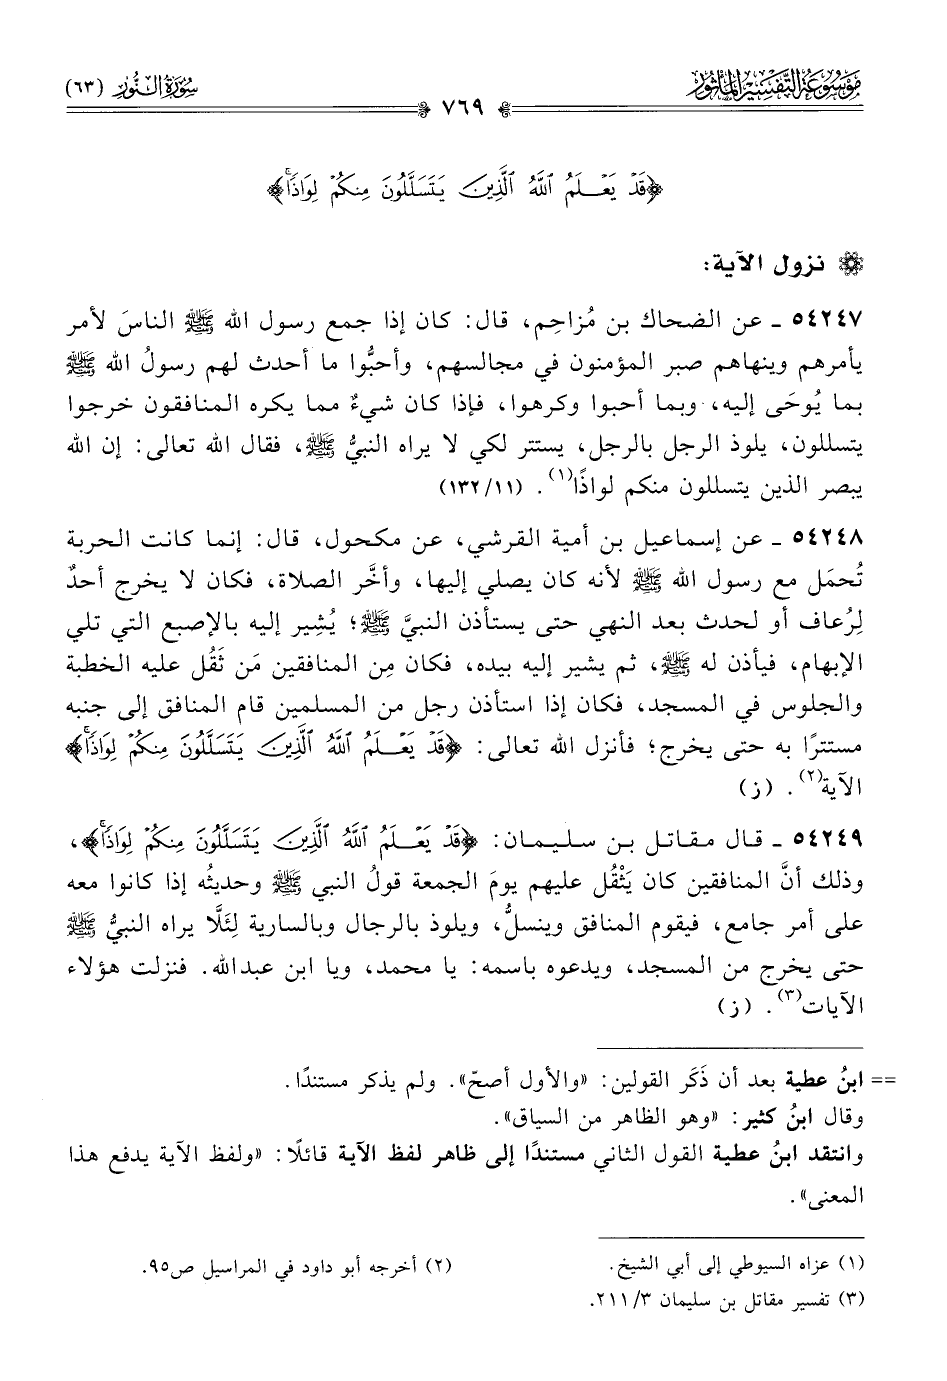 مَوْسُوعَة التَّفْسِير المَأْثُور
سُورَةُ النُّور (٦٣)
٧٦٩
﴿قَدْ يَعْلَمُ ٱللَّهُ ٱلَّذِينَ يَتَسَلَّلُونَ مِنكُمْ لِوَاذًاۚ﴾
نزول الآية:
٥٤٢٤٧ ـ عن الضحاك بن مُزاحِم، قال: كان إذا جمع رسول الله ﷺ الناسَ لأمر
يأمرهم وينهاهم صبر المؤمنون في مجالسهم، وأحبُّوا ما أحدث لهم رسولُ الله ﷺ
بما يُوحَى إليه، وبما أحبوا وكرهوا، فإذا كان شيءٌ مما يكره المنافقون خرجوا
يتسللون، يلوذ الرجل بالرجل، يستتر لكي لا يراه النبيُّ ﷺ، فقال الله تعالى: إن الله
يبصر الذين يتسللون منكم لواذًا(١). (١١/١٣٢)
٥٤٢٤٨ ـ عن إسماعيل بن أمية القرشي، عن مكحول، قال: إنما كانت الحربة
تُحمَل مع رسول الله ﷺ لأنه كان يصلي إليها، وأخَّر الصلاة، فكان لا يخرج أحدٌ
لِرُعاف أو لحدث بعد النهي حتى يستأذن النبيَّ ﷺ؛ يُشِير إليه بالإصبع التي تلي
الإبهام، فيأذن له ﷺ، ثم يشير إليه بيده، فكان مِن المنافقين مَن ثَقُل عليه الخطبة
والجلوس في المسجد، فكان إذا استأذن رجل من المسلمين قام المنافق إلى جنبه
مستترًا به حتى يخرج؛ فأنزل الله تعالى: ﴿قَدْ يَعْلَمُ ٱللَّهُ ٱلَّذِينَ يَتَسَلَّلُونَ مِنكُمْ لِوَاذًاۚ﴾
الآية(٢). (ز)
٥٤٢٤٩ ـ قال مقاتل بن سليمان: ﴿قَدْ يَعْلَمُ ٱللَّهُ ٱلَّذِينَ يَتَسَلَّلُونَ مِنكُمْ لِوَاذًاۚ﴾،
وذلك أنَّ المنافقين كان يَثْقُل عليهم يومَ الجمعة قولُ النبي ﷺ وحديثُه إذا كانوا معه
على أمر جامع، فيقوم المنافق وينسلُّ، ويلوذ بالرجال وبالسارية لِئَلَّا يراه النبيُّ ﷺ
حتى يخرج من المسجد، ويدعوه باسمه: يا محمد، ويا ابن عبدالله. فنزلت هؤلاء
الآيات(٣). (ز)
== ابنُ عطية بعد أن ذَكَر القولين: «والأول أصحّ». ولم يذكر مستندًا.
وقال ابنُ كثير: «وهو الظاهر من السياق».
وانتقد ابنُ عطية القول الثاني مستندًا إلى ظاهر لفظ الآية قائلًا: «ولفظ الآية يدفع هذا
المعنى».
(١) عزاه السيوطي إلى أبي الشيخ.
(٢) أخرجه أبو داود في المراسيل ص٩٥.
(٣) تفسير مقاتل بن سليمان ٣/ ٢١١.